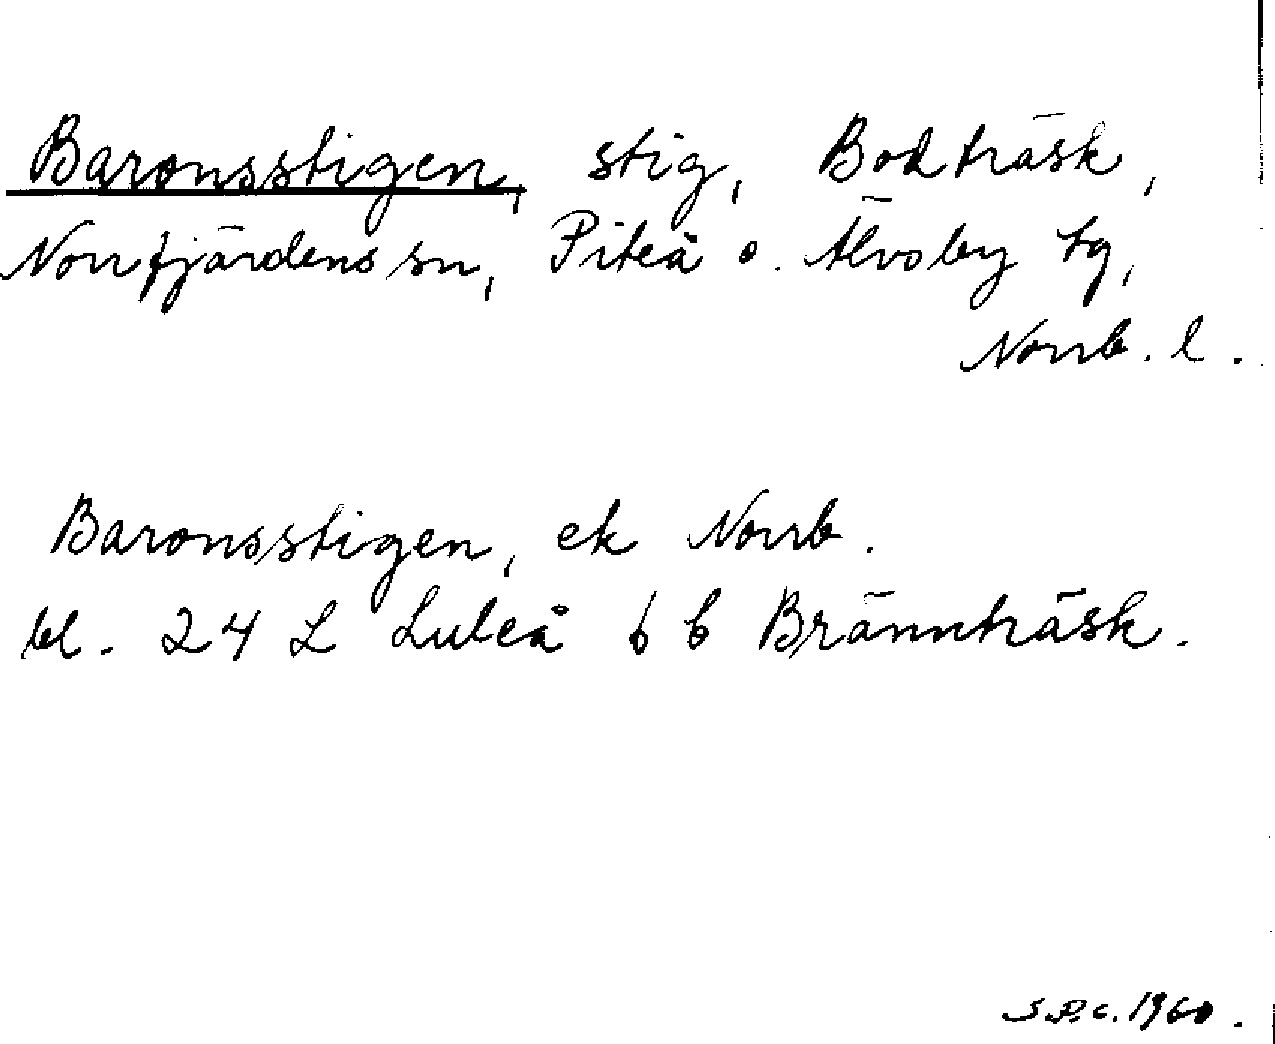 Baronsstigen, stig, Bodträsk,
Norrfjärdens sn, Piteå o. Älvsby tg,
Norrb. l.
Baronsstigen, ek Norrb.
bl. 24 L Luleå 6 b Brännträsk.
S.P.c. 1960.